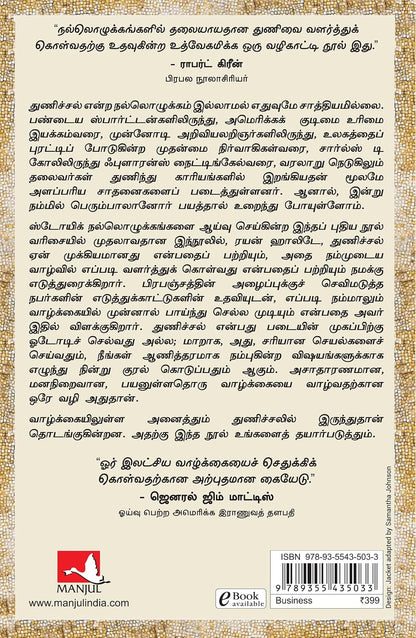 "நல்லொழுக்கங்களில் தலையாயதான துணிவை வளர்த்துக்
கொள்வதற்கு உதவுகின்ற உத்வேகமிக்க ஒரு வழிகாட்டி நூல் இது."
– ராபர்ட் கிரீன்
பிரபல நூலாசிரியர்
துணிச்சல் என்ற நல்லொழுக்கம் இல்லாமல் எதுவுமே சாத்தியமில்லை.
பண்டைய ஸ்பார்ட்டன்களிலிருந்து, அமெரிக்கக் குடிமை உரிமை
இயக்கம்வரை, முன்னோடி அறிவியலறிஞர்களிலிருந்து, உலகத்தைப்
புரட்டிப் போடுகின்ற முதன்மை நிர்வாகிகள்வரை, சார்ல்ஸ் டி
கோலிலிருந்து ஃபுளாரன்ஸ் நைட்டிங்கேல்வரை, வரலாறு நெடுகிலும்
தலைவர்கள் துணிந்து காரியங்களில் இறங்கியதன் மூலமே
அளப்பரிய சாதனைகளைப் படைத்துள்ளனர். ஆனால், இன்று
நம்மில் பெரும்பாலானோர் பயத்தால் உறைந்து போயுள்ளோம்.
ஸ்டோயிக் நல்லொழுக்கங்களை ஆய்வு செய்கின்ற இந்தப் புதிய நூல்
வரிசையில் முதலாவதான இந்நூலில், ரயன் ஹாலிடே, துணிச்சல்
ஏன் முக்கியமானது என்பதைப் பற்றியும், அதை நம்முடைய
வாழ்வில் எப்படி வளர்த்துக் கொள்வது என்பதைப் பற்றியும் நமக்கு
எடுத்துரைக்கிறார். பிரபஞ்சத்தின் அழைப்புக்குச் செவிமடுத்த
நபர்களின் எடுத்துக்காட்டுகளின் உதவியுடன், எப்படி நம்மாலும்
வாழ்க்கையில் முன்னால் பாய்ந்து செல்ல முடியும் என்பதை அவர்
இதில் விளக்குகிறார். துணிச்சல் என்பது படையின் முகப்பிற்கு
ஓடோடிச் செல்வது அல்ல; மாறாக, அது, சரியான செயல்களைச்
செய்வதும், நீங்கள் ஆணித்தரமாக நம்புகின்ற விஷயங்களுக்காக
எழுந்து நின்று குரல் கொடுப்பதும் ஆகும். அசாதாரணமான,
மனநிறைவான, பயனுள்ளதொரு வாழ்க்கையை வாழ்வதற்கான
ஒரே வழி அதுதான்.
வாழ்க்கையிலுள்ள அனைத்தும் துணிச்சலில் இருந்துதான்
தொடங்குகின்றன. அதற்கு இந்த நூல் உங்களைத் தயார்படுத்தும்.
"ஓர் இலட்சிய வாழ்க்கையைச் செதுக்கிக்
கொள்வதற்கான அற்புதமான கையேடு."
– ஜெனரல் ஜிம் மாட்டிஸ்
ஓய்வு பெற்ற அமெரிக்க இராணுவத் தளபதி
MANJUL
www.manjulindia.com
eBook
available
ISBN 978-93-5543-503-3
9 789355 435033
Business ₹399
Design: Jacket adapted by Samantha Johnson